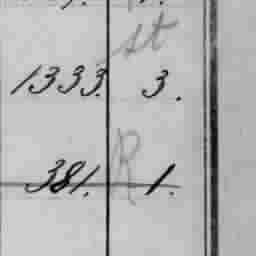 st
1333. 3.
R
381. 1.